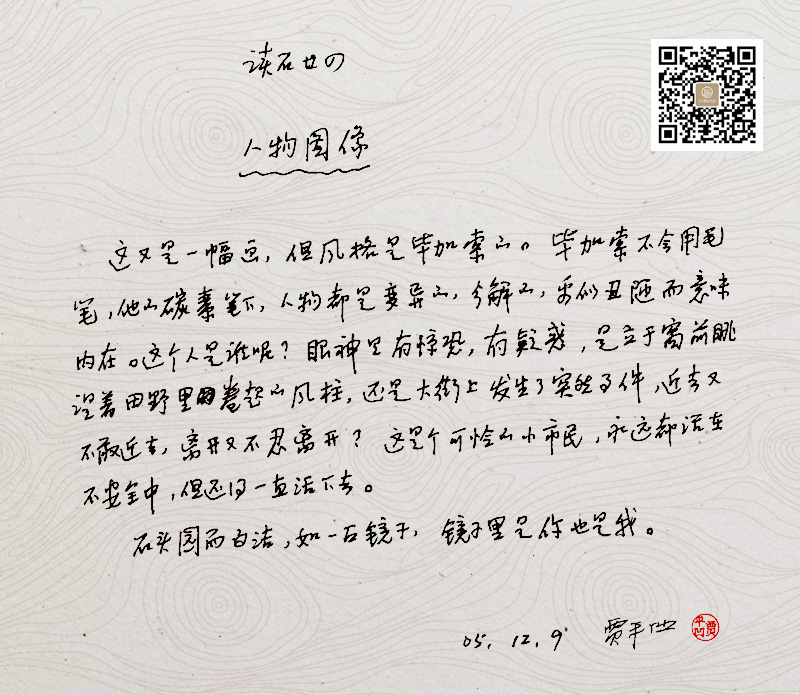 读石廿四
人物图像
这又是一幅画，但风格是毕加索的。毕加索不会用毛
笔，他的碳素笔下，人物都是变异的，分解的，乖似丑陋而意味
内在。这个人是谁呢？眼神里有惊恐，有疑惑，是立于窗前眺
望着田野里卷起的风柱，还是大街上发生了突然事件，近去又
不敢近去，离开又不忍离开？这是个可怜的小市民，永远都活在
不安全中，但还得一直活下去。
石头圆而白洁，如一石镜子，镜子里是你也是我。
05.12.9 贾平凹
贾平凹